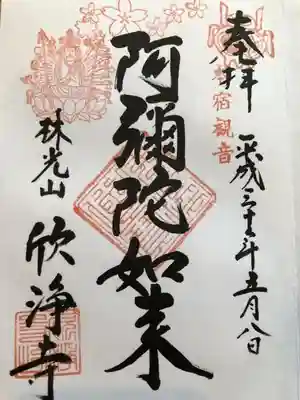 奉拝
宿観音
平成三十年五月八日
阿彌陀如来
林光山
欣浄寺